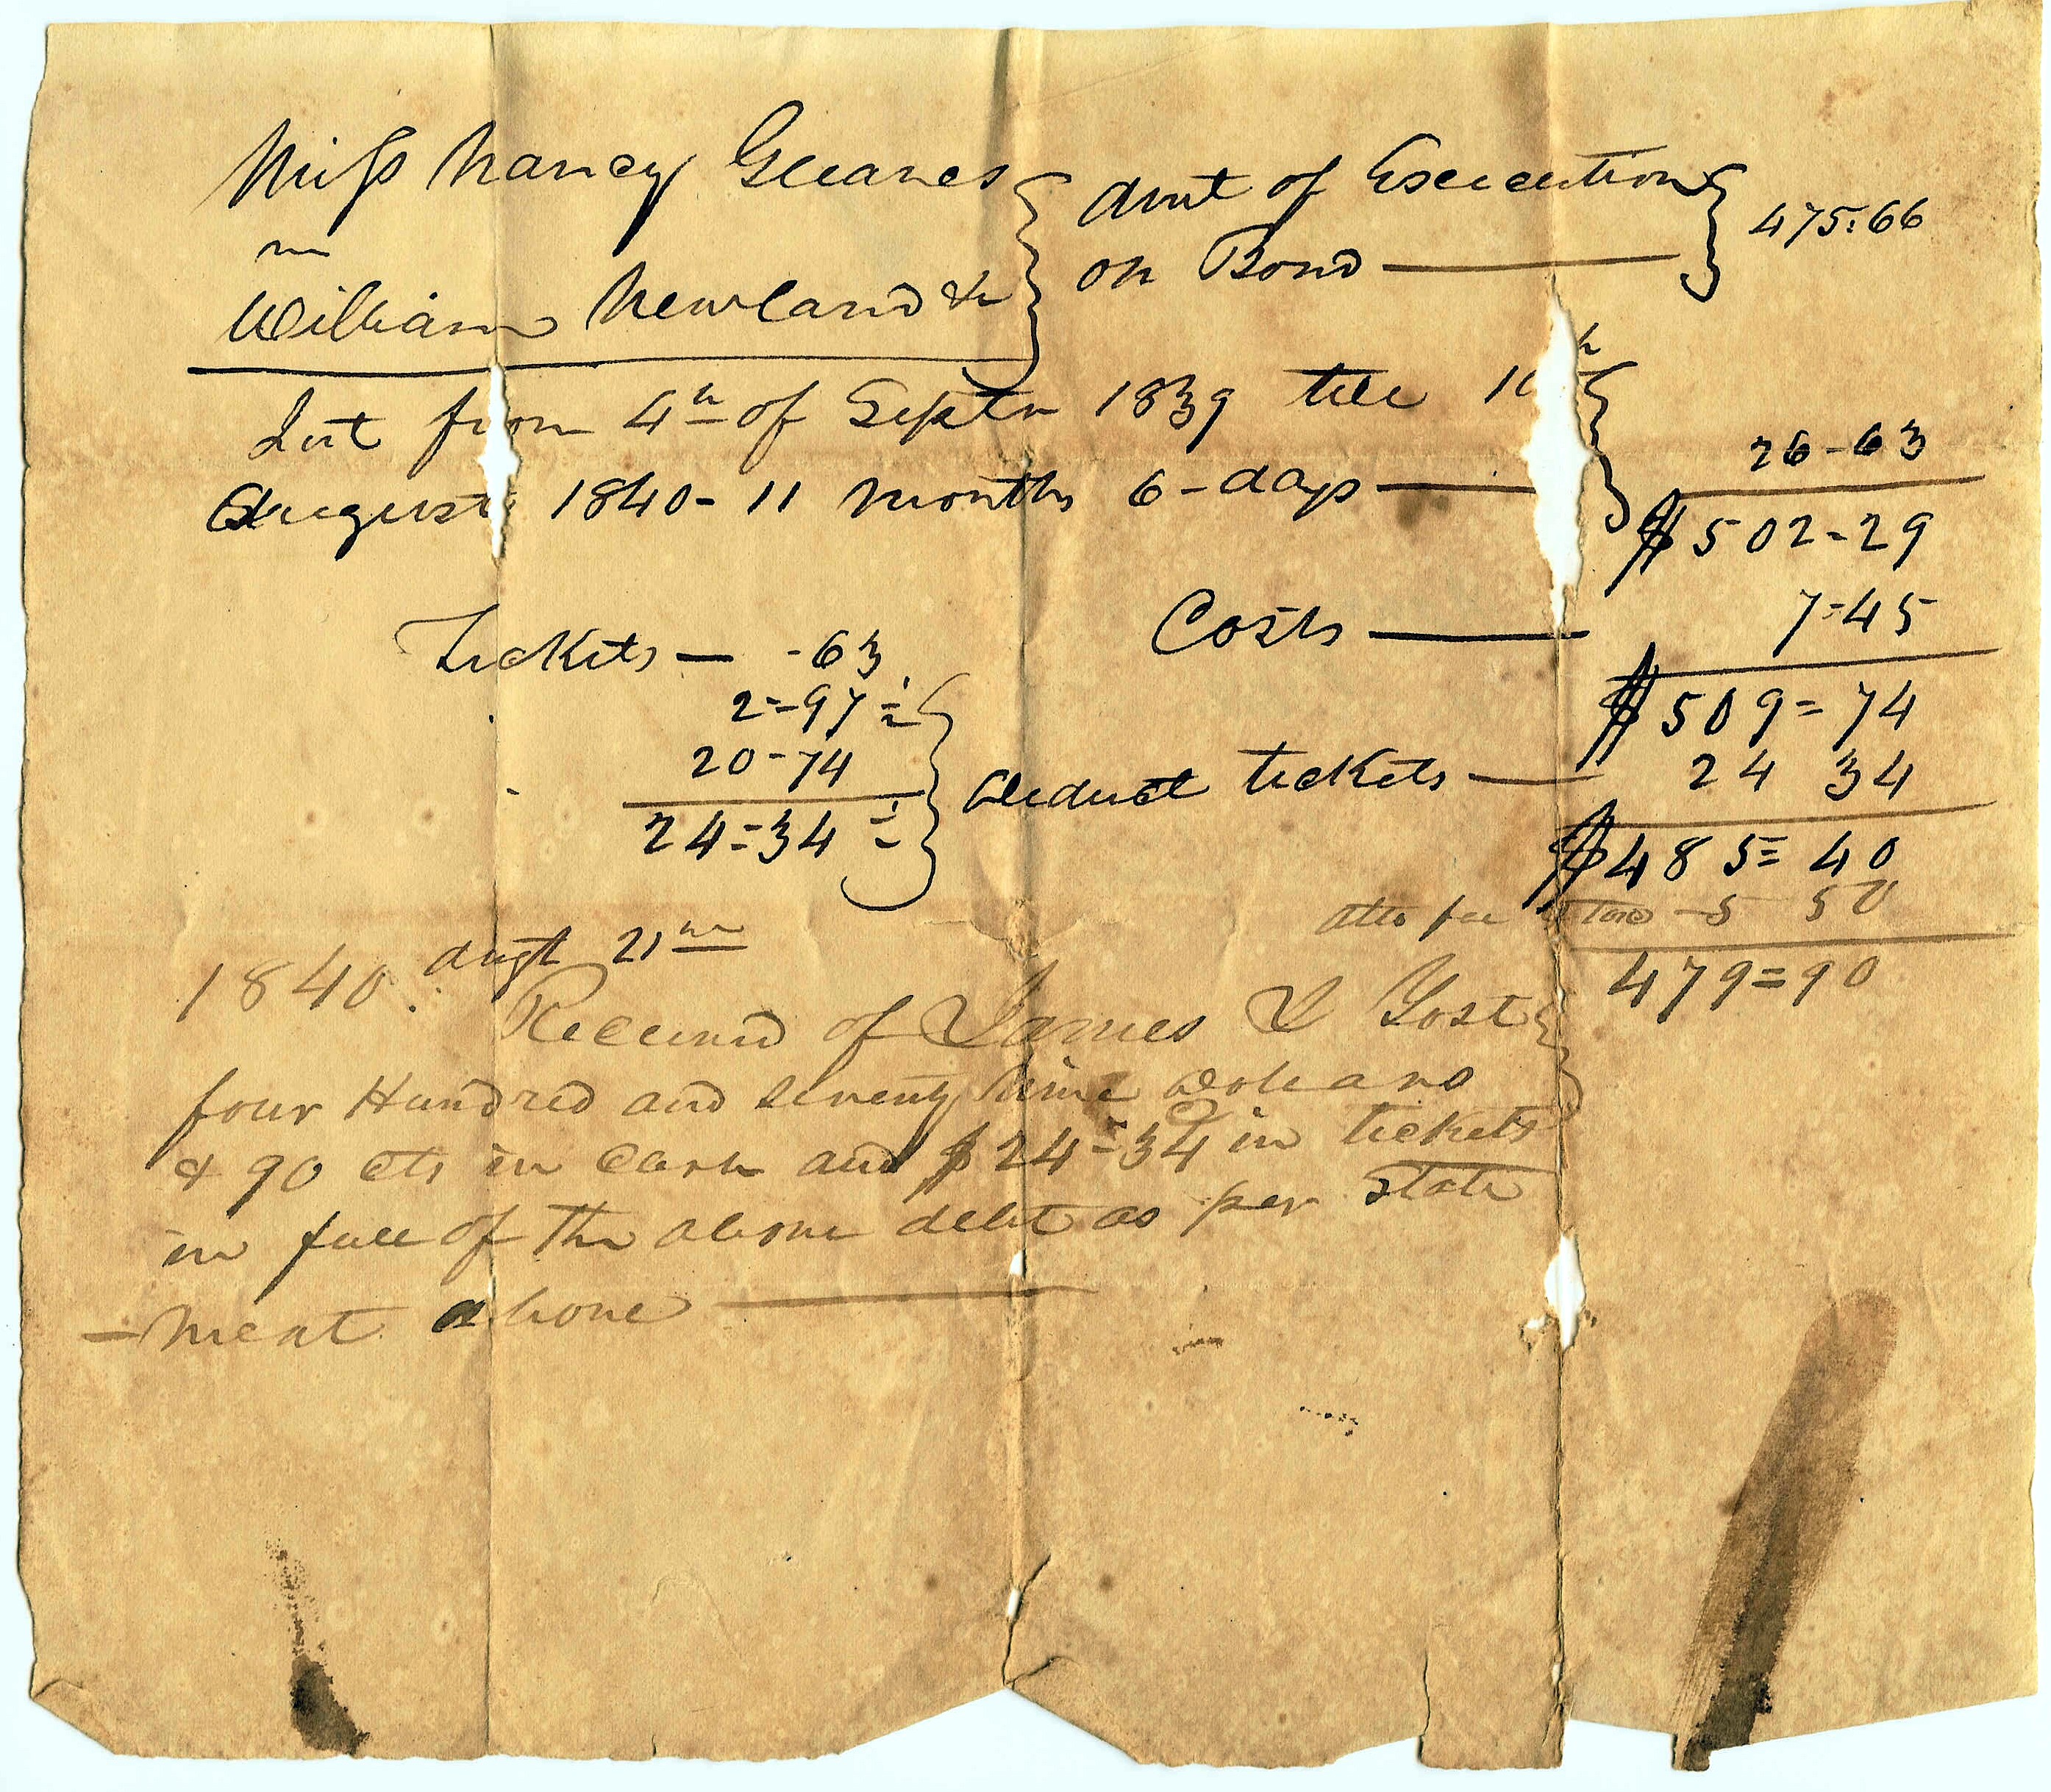 Miss Nancy Gleaves
vs
William Newland &c
Amt of Execution
on Bond — 475.66
Int from 4th of Septr 1839 till 10th
August 1840 - 11 months 6 - days — 26-63
$502-29
Costs — 7=45
$509=74
Tickets — -63
2=97 1/2
20-74
24=34 1/2
deduct tickets — 24 34
$485= 40
atto fee 5 50
479=90
1840. Augt 21st
Received of James I Yost
four Hundred and seventy nine dollars
& 90 cts in Cash and $24=34 in tickets
in full of the above debt as per State
-ment above —